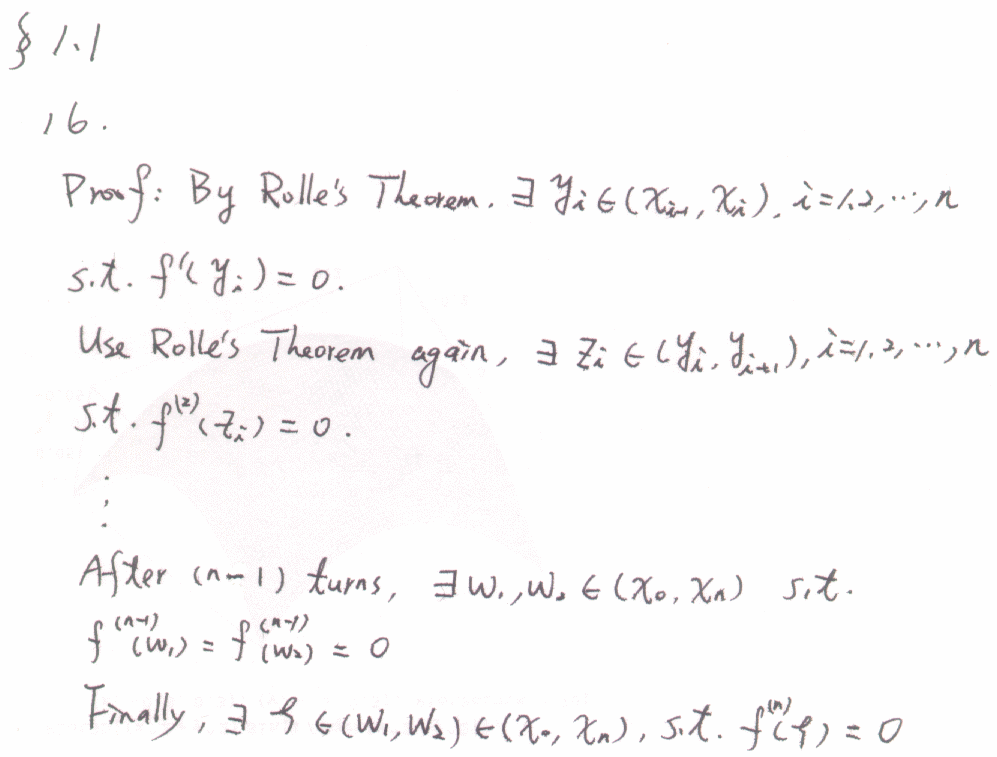 § 1.1
16.
Proof: By Rolle's Theorem. ∃ y_i ∈ (x_{i-1}, x_i), i=1,2,⋯,n
s.t. f'(y_i) = 0.
Use Rolle's Theorem again, ∃ z_i ∈ (y_i, y_{i+1}), i=1,2,⋯,n
s.t. f^{(2)}(z_i) = 0.
⋮
After (n-1) turns, ∃ w_1, w_2 ∈ (x_0, x_n) s.t.
f^{(n-1)}(w_1) = f^{(n-1)}(w_2) = 0
Finally, ∃ ξ ∈ (w_1, w_2) ∈ (x_0, x_n), s.t. f^{(n)}(ξ) = 0